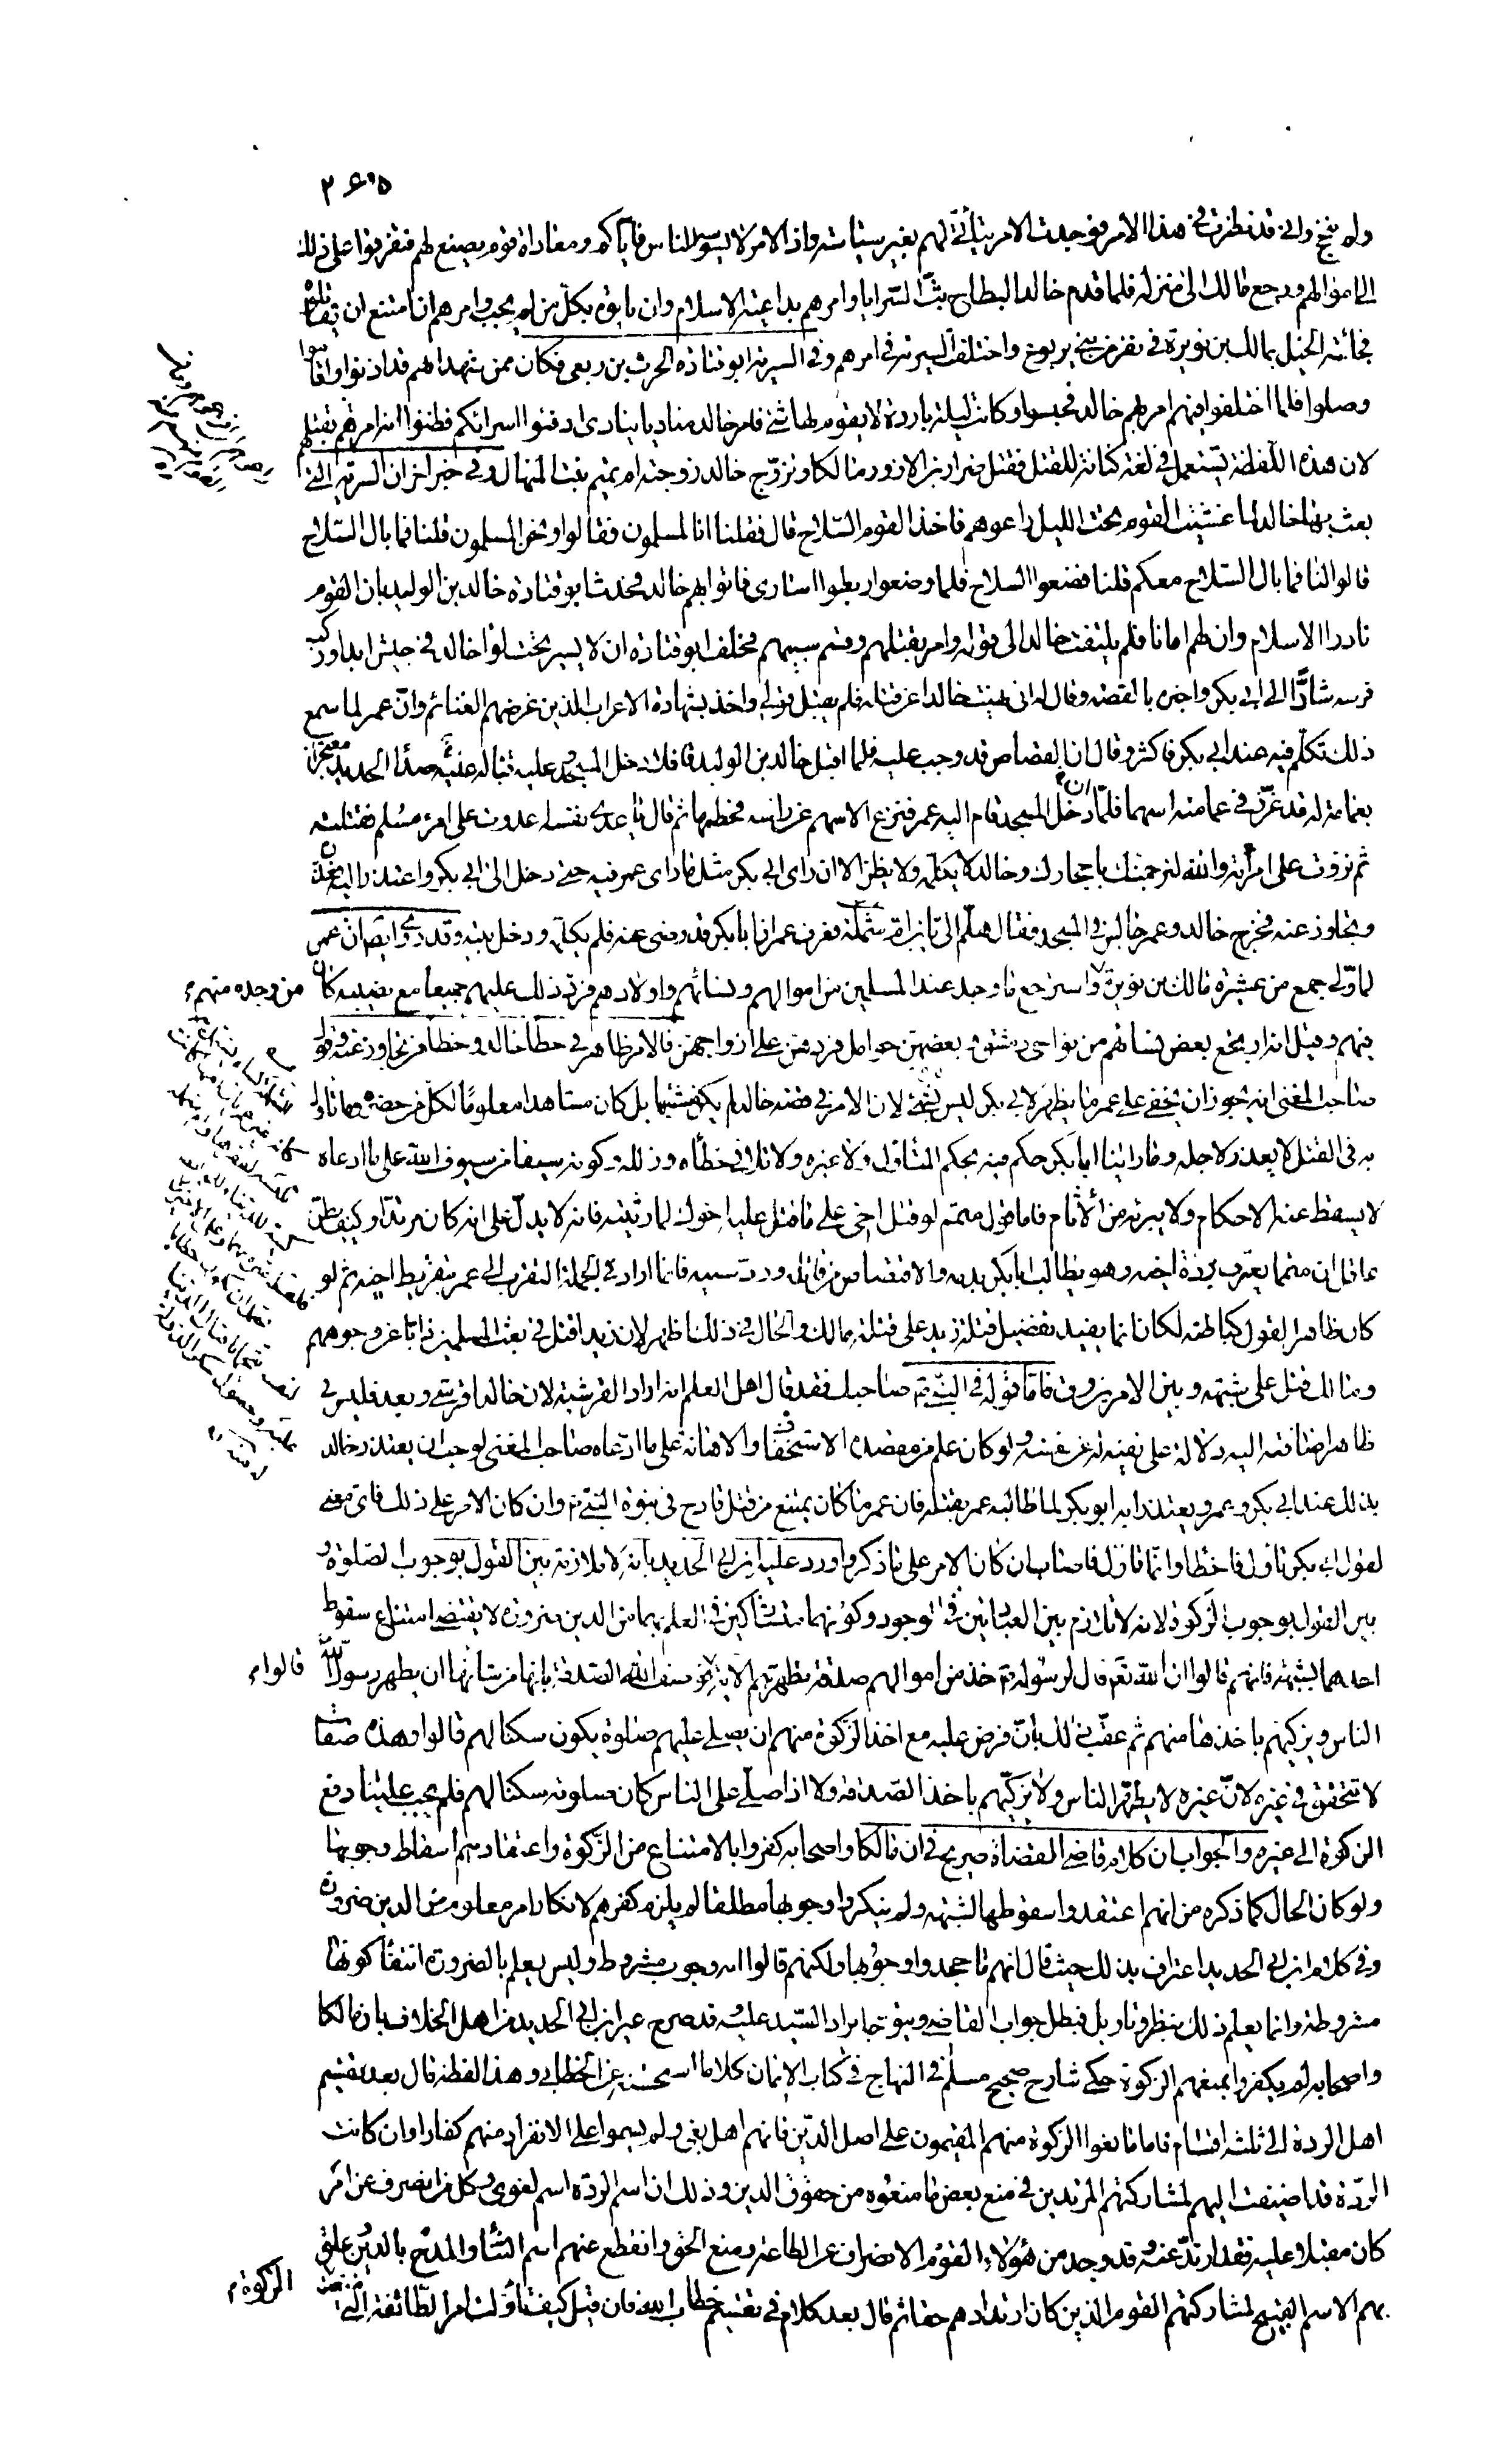 ٢٦٥
ولم ننجح واني قد نظرت في هذا الامر فوجدت الامر يتأتّى لهم بغير سياسة واذا الامر لا يسوسه الناس فاياكم ومعاداة قوم يصنع لهم فتفرقوا على ذلك
الى اموالهم ورجع مالك الى منزله فلما قدم خالد البطاح بثّ السّرايا وامرهم بداعية الاسلام وان ياتوه بكلّ من لم يجب وامرهم ان امتنع ان يقاتلوه
فجائته الخيل بمالك بن نويرة في نفر من بني يربوع واختلفت السرية في امرهم وفي السرية ابو قتادة الحرث بن ربعي فكان ممن شهد انهم قد اذنوا واقاموا
وصلوا فلما اختلفوا فيهم امر بهم خالد فحبسوا وكانت ليلة باردة لا يقوم لها شئ فامر خالد مناديا ينادي ادفئوا اسرائكم فظنوا انه امرهم بقتلهم
لان هذه اللّفظة يستعمل في لغة كنانة للقتل فقتل ضرار بن الازور مالكا وتزوّج خالد زوجته ام تميم بنت المنهال وفي خبر اخر ان السرية التي
بعث بها خالد لما غشيت القوم تحت الليل راعوهم فاخذ القوم السّلاح قال فقلنا انا المسلمون فقالوا ونحن المسلمون قلنا فما بال السّلاح
قالوا لنا فما بال السّلاح معكم قلنا فضعوا السلاح فلما وضعوا ربطوا اسارى فاتوا بهم خالد فحدث ابو قتادة خالد بن الوليد بان القوم
نادوا الاسلام وان لهم امانا فلم يلتفت خالد الى قوله وامر بقتلهم وقسم سبيهم فحلف ابو قتادة ان لا يسير تحت لواء خالد في جيش ابدا وركب
فرسه شاذّا الى ابي بكر واخبره بالقصة وقال له اني نهيت خالدا عن قتله فلم يقبل قولي واخذ بشهادة الاعراب الذين غرضهم الغنائم وانّ عمر لما سمع
ذلك تكلّم فيه عند ابي بكر فاكثر وقال ان القصاص قد وجب عليه فلما اقبل خالد بن الوليد قافلا دخل المسجد وعليه قباء له عليه صدأ الحديد معتجرا
بعمامة له قد غرز في عمامته اسهما فلمّا ان دخل المسجد قام اليه عمر فنزع الاسهم عن راسه فحطمها ثم قال يا عدىّ نفسه اعدوت على امرء مسلم فقتلته
ثم نزوت على امرأته والله لنرجمنّك باحجارك وخالد لا يكلّمه ولا يظنّ الا ان راى ابي بكر مثل ما راى عمر فيه حتى دخل الى ابي بكر واعتذر اليه فعذره
وتجاوز عنه فخرج خالد وعمر جالس في المسجد فقال هلمّ الىّ يا بن ام شملة فعرف عمر ان ابا بكر قد رضى عنه فلم يكلّمه ودخل بيته وقد روى ايضا ان عمر
لما ولّى جمع من عشيرة مالك بن نويرة واسترجع ما وجد عند المسلمين من اموالهم ونسائهم واولادهم فردّ ذلك عليهم جميعا مع نصيبه كان
من وجده منهم
منهم وقيل انه ارتجع بعض نسائهم من نواحي دمشق وبعضهن حوامل فردهن على ازواجهن فالامر ظاهر في خطأ خالد وخطأ من تجاوز عنه وقول
صاحب المغني انه يجوز ان يخفى على عمر ما يظهر لابي بكر ليس بشئ لان الامر في قصة خالد لم يكن مشتبها بل كان مشاهدا معلوما لكلّ من حضره وما تاول
به في القتل لا يعذر لاجله وما راينا ابا بكر حكم فيه بحكم المتاول ولا غيره ولا تلافى خطأه وزلله وكونه سيفا من سيوف الله على ما ادعاه
لا يسقط عنه الاحكام ولا يبرئه من الأثام فاما قول متمم لو قتل اخي على ما قتل عليه اخوك لما رثيته فانه لا يدلّ على انه كان مرتدّا وكيف يظنّ
عاقل ان متمما يعترف بردة اخيه وهو يطالب ابا بكر بدمه والاقتصاص من قاتله وردّ سبيه فانما اراد في الجملة التقرب الى عمر بتقريظ اخيه ثم لو
كان ظاهر القول كباطنه لكان انما يفيد تفضيل قتلة زيد على قتلة مالك والحال في ذلك اظهر لان زيدا قتل في بعث المسلمين ذابا عن وجوههم
ومالك قتل على شبهة وبين الامرين فرق فامّا قوله في النبيّ صاحبك فقد قال اهل العلم انه اراد القرشية لان خالدا قرشي وبعد فليس في
ظاهر اضافته اليه دلالة على نفيه له عن نفسه ولو كان علم من مقصده الاستخفاف والاهانة على ما ادّعاه صاحب المغني لوجب ان يعتذر خالد
بذلك عند ابي بكر وعمر ويعتذر به ابو بكر لما طالبه عمر بقتله فان عمر ما كان يمتنع من قتل قادح في نبوة النبيّ وان كان الامر على ذلك فاىّ معنى
لقول ابي بكر تاول فاخطا وانّما تاول فاصاب ان كان الامر على ما ذكر واورد عليه ابن ابي الحديد بانه لا ملازمة بين القول بوجوب الصّلوة و
بين القول بوجوب الزكوة لانه لا تلازم بين العبادتين في الوجود وكونهما متشاركين في العلم بهما من الدين ضرورة لا يقتضي امتناع سقوط
احدهما بشبهة فانهم قالوا ان الله تعالى قال لرسوله خذ من اموالهم صدقة تطهرهم الاية قالوا فوصف الله الصدقة بانها من شانها ان يطهر رسول الله
الناس ويزكيهم باخذها منهم ثم عقّب ذلك بانّ فرض عليه مع اخذ الزّكوة منهم ان يصلي عليهم صلوة يكون سكنا لهم قالوا وهذه صفات
لا تتحقق في غيره لانّ غيره لا يطهّر الناس ولا يزكيّهم باخذ الصّدقة ولا اذا صلّى على الناس كان صلوته سكنا لهم فلم يجب علينا دفع
الزكوة الى غيره والجواب ان كلام قاضي القضاة صريح في ان مالكا واصحابه كفروا بالامتناع من الزّكوة واعتقادهم اسقاط وجوبها
ولو كان الحال كما ذكره من انهم اعتقدوا سقوطها لشبهة ولم ينكروا وجوبها مطلقا لم يلزم كفرهم لانكار امر معلوم من الدين ضرورة
وفي كلام ابن ابي الحديد اعتراف بذلك حيث قال انهم ما جحدوا وجوبها ولكنهم قالوا انه وجوب مشروط وليس يعلم بالضرورة انتفاء كونها
مشروطة وانما يعلم ذلك بنظر وتاويل فبطل جواب القاضي وبقى ايراد السّيد عليه وقد صرح غير ابن ابي الحديد من اهل الخلاف بان مالكا
واصحابه لم يكفروا بمنعهم الزكوة حكى شارح صحيح مسلم في المنهاج في كتاب الايمان كلاما استحسنه عن الخطابي وهذا لفظه قال بعد تقسيم
اهل الردة الى ثلثة اقسام فاما مانعوا الزكوة منهم المقيمون على اصل الدّين فانهم اهل بغي ولم يسموا على الانفراد منهم كفارا وان كانت
الردّة قد اضيفت اليهم لمشاركتهم المرتدين في منع بعض ما منعوه من حقوق الدين وذلك ان اسم الردّة اسم لغوي وكل من انصرف عن امر
كان مقبلا عليه فقد ارتدّ عنه وقد وجد من هؤلاء القوم الانصراف عن الطاعة ومنع الحق وانقطع عنهم اسم الثناء والمدح بالدين وعلق
بهم الاسم القبيح لمشاركتهم القوم الذين كان ارتدادهم حقا ثم قال بعد كلام في تقسيم خطاب الله فان قيل كيف تأوّلت امر الطائفة التي منعت
الزكوة